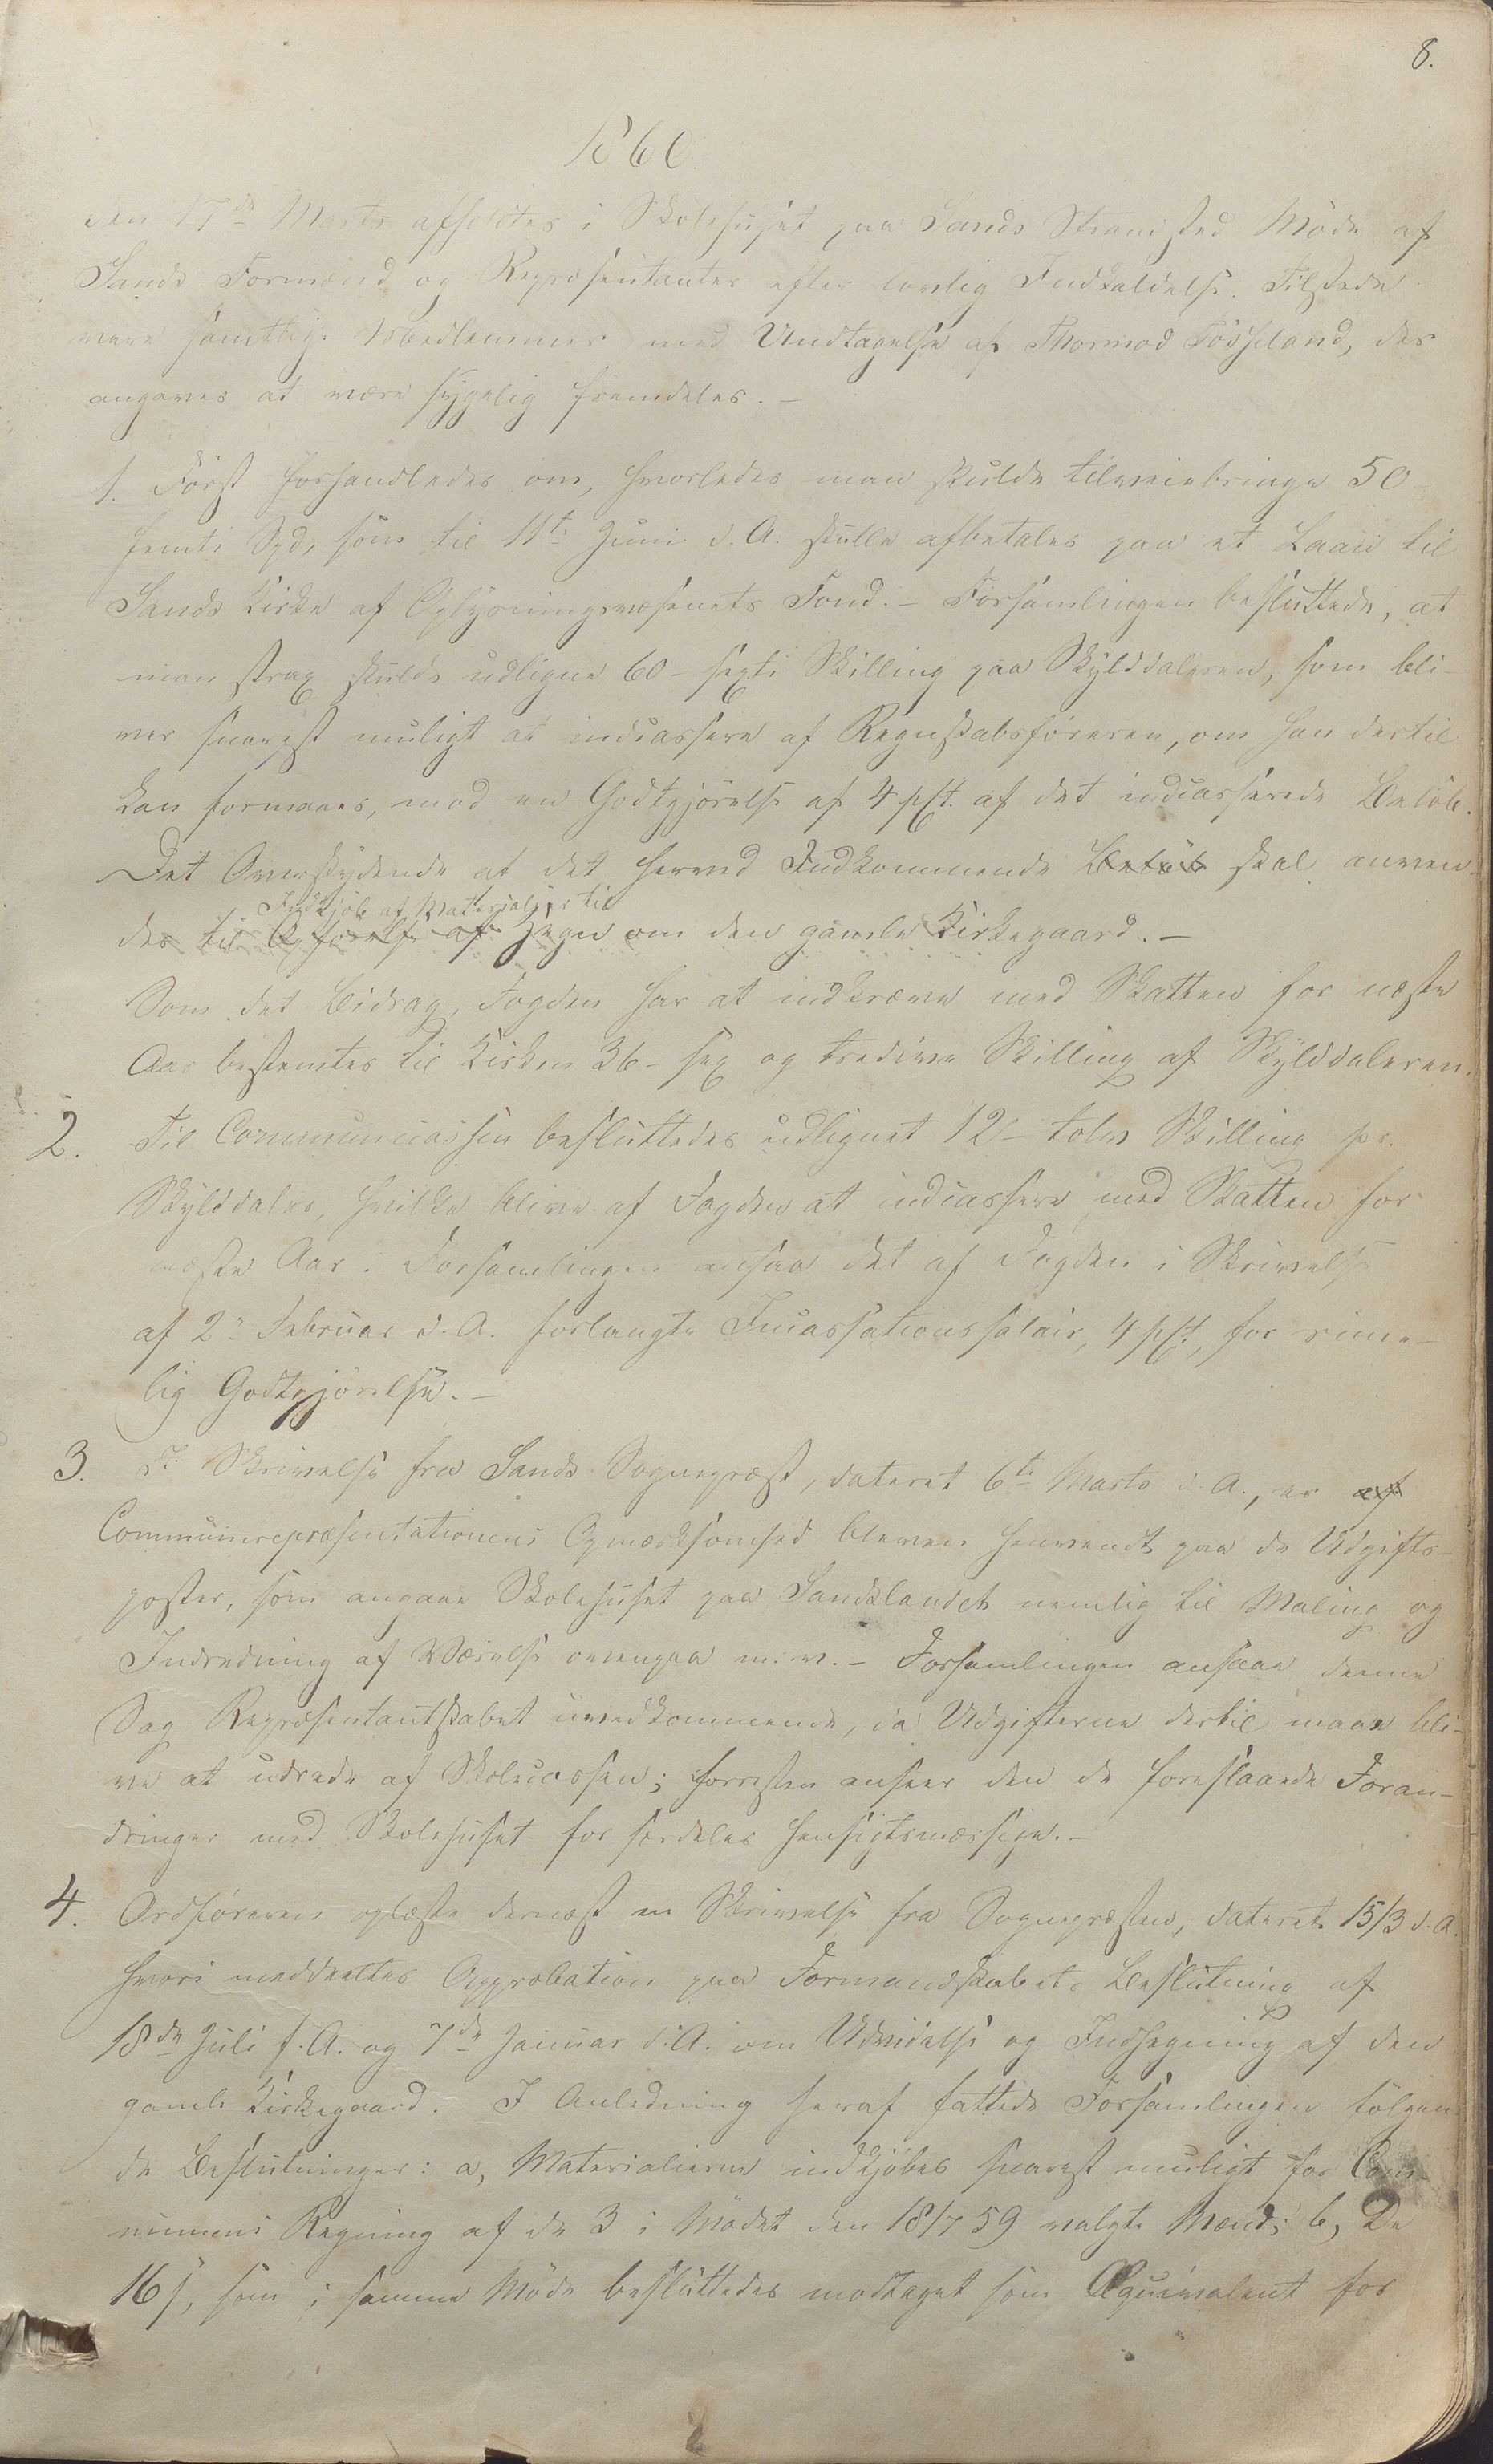 8.
1860
den 17de Marts afholdtes i Skolehuset paa Sands Strandsted Møde af
Sands Formænd og Repræsentanter efter lovlig Indkaldelse. Tilstede
vare samtlige Medlemmer med Undtagelse af Thormod Fosseland, der
angaves at være sygelig fremdeles. –
1. Först forhandledes om, hvorledes man skulde tilveiebringe 50 –
femti Spd, som til 11te Juni d. A. skulle afbetales paa et Laan til
Sands Kirke af Oplysningsvæsenets Fond. – Forsamlingen besluttede, at
man strax skulde udligne 60 – sexti Skilling paa Skylddaleren, som bli-
ver snarest muligt at indcassere af Regnskabsföreren, om han dertil
kan formaaes, mod en Godtgjörelse af 4 pCt. af det indcasserede Belöb.
Det Overskydende af det herved Indkommende Belöb skal anven-
Indkjöb af Materialier til
des til Opförelse af Hegn om den gamle Kirkegaard. –
Som det Bidrag, Fogden har at indkræve med Skatten for næste
Aar bestemtes til Kirken 36 – sex og tredive Skilling af Skylddaleren.
2. Til Communecassen besluttedes udlignet 12 – tolv Skilling pr.
Skylddaler, hvilke blive af Fogden at indcassere med Skatten for
næste Aar. Forsamlingen ansaa det af Fogden i Skrivelse
af 2den Februar d. A. forlangte Incassationssalair, 4 pCt., for rime-
lig Godtgjörelse. –
3. I Skrivelse fra Sands Sognepræst, dateret 6te Marts d. A., er af
Communerepræsentationens Opmærksomhed bleven henvendt paa de Udgifts-
poster, som angaae Skolehuset paa Sandslandet nemlig til Maling og
Indredning af Værelse ovenpaa m. v. – Forsamlingen ansaae denne
Sag Repræsentantskabet uvedkommende, da Udgifterne dertil maae bli-
ve at udrede af Skolecassen; forresten anseer den de foreslaaede Foran-
dringer med Skolehuset for særdeles hensigtsmæssige. –
4. Ordföreren oplæste dernæst en Skrivelse fra Sognepræsten, dateret 15/3 d. A.
hvori meddeeltes Approbation paa Formandskabets Beslutning af
18de Juli f. A. og 7de Januar d. A. om Udvidelse og Indhegning af den
gamle Kirkegaard. I Anledning heraf fattede Forsamlingen fölgen-
de Beslutninger: a, Materialierne indkjöbes snarest muligt for Com-
munens Regning af de 3 i Mödet den 18/7 59 valgte Mænd; b, De
16 s, som i samme Möde besluttedes modtaget som Æquivalent for